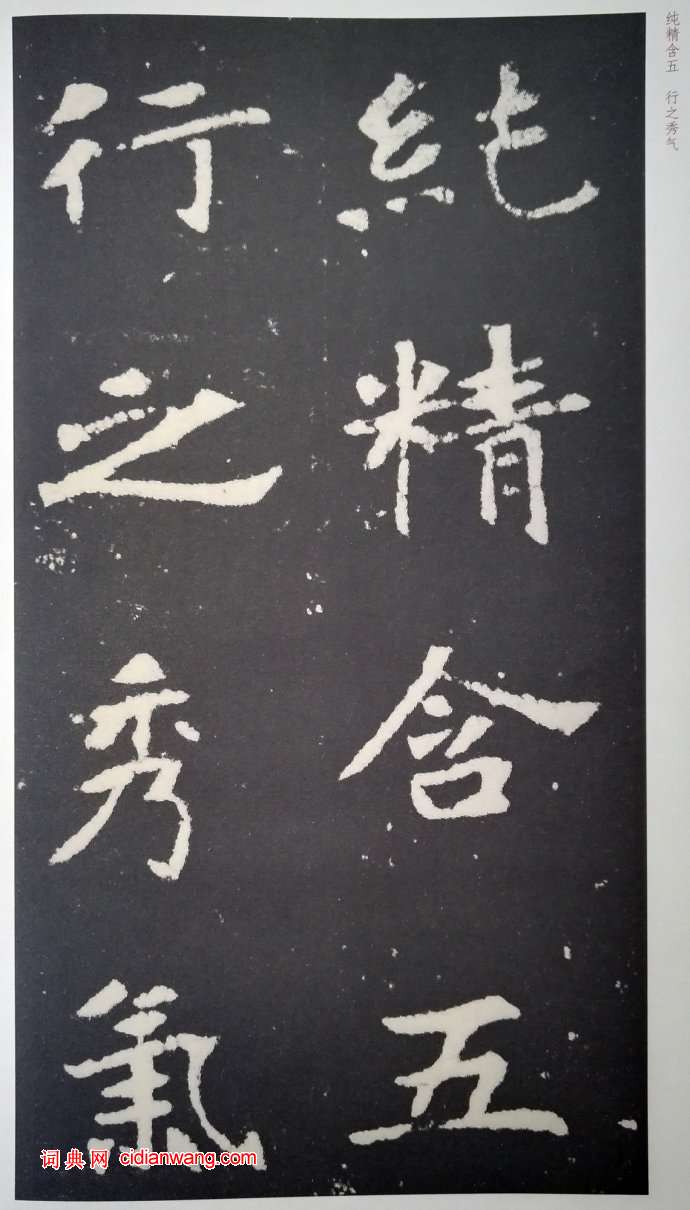 纯精含五 行之秀气
純精含五
行之秀氣
词典网 cidianwang.com